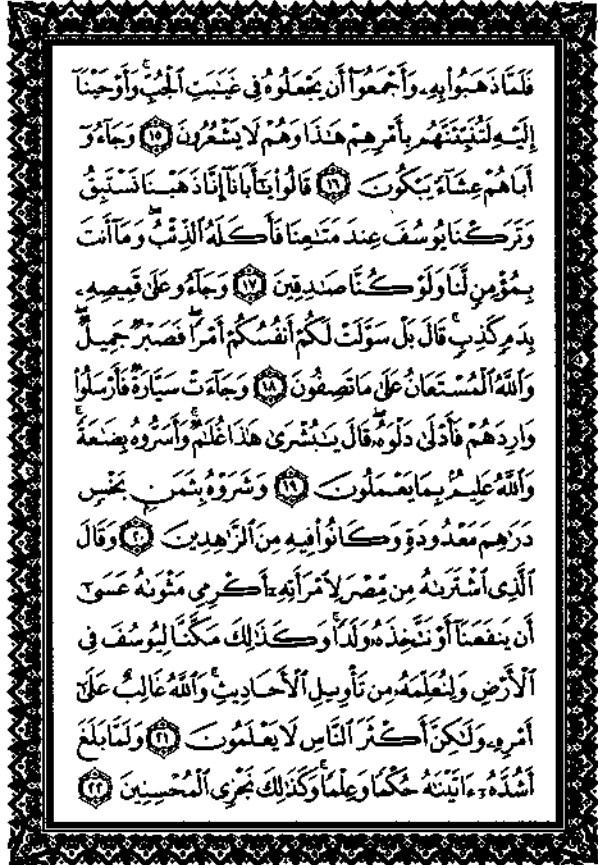 فَلَمَّا ذَهَبُوا۟ بِهِۦ وَأَجْمَعُوٓا۟ أَن يَجْعَلُوهُ فِى غَيَٰبَتِ ٱلْجُبِّ ۚ وَأَوْحَيْنَآ
إِلَيْهِ لَتُنَبِّئَنَّهُم بِأَمْرِهِمْ هَٰذَا وَهُمْ لَا يَشْعُرُونَ ١٥ وَجَآءُوٓ
أَبَاهُمْ عِشَآءً يَبْكُونَ ١٦ قَالُوا۟ يَٰٓأَبَانَآ إِنَّا ذَهَبْنَا نَسْتَبِقُ
وَتَرَكْنَا يُوسُفَ عِندَ مَتَٰعِنَا فَأَكَلَهُ ٱلذِّئْبُ ۖ وَمَآ أَنتَ
بِمُؤْمِنٍ لَّنَا وَلَوْ كُنَّا صَٰدِقِينَ ١٧ وَجَآءُو عَلَىٰ قَمِيصِهِۦ
بِدَمٍ كَذِبٍ ۚ قَالَ بَلْ سَوَّلَتْ لَكُمْ أَنفُسُكُمْ أَمْرًا ۖ فَصَبْرٌ جَمِيلٌ ۖ
وَٱللَّهُ ٱلْمُسْتَعَانُ عَلَىٰ مَا تَصِفُونَ ١٨ وَجَآءَتْ سَيَّارَةٌ فَأَرْسَلُوا۟
وَارِدَهُمْ فَأَدْلَىٰ دَلْوَهُۥ ۖ قَالَ يَٰبُشْرَىٰ هَٰذَا غُلَٰمٌ ۚ وَأَسَرُّوهُ بِضَٰعَةً ۚ
وَٱللَّهُ عَلِيمٌۢ بِمَا يَعْمَلُونَ ١٩ وَشَرَوْهُ بِثَمَنٍۭ بَخْسٍ
دَرَٰهِمَ مَعْدُودَةٍ وَكَانُوا۟ فِيهِ مِنَ ٱلزَّٰهِدِينَ ٢٠ وَقَالَ
ٱلَّذِى ٱشْتَرَىٰهُ مِن مِّصْرَ لِٱمْرَأَتِهِۦٓ أَكْرِمِى مَثْوَىٰهُ عَسَىٰٓ
أَن يَنفَعَنَآ أَوْ نَتَّخِذَهُۥ وَلَدًا ۚ وَكَذَٰلِكَ مَكَّنَّا لِيُوسُفَ فِى
ٱلْأَرْضِ وَلِنُعَلِّمَهُۥ مِن تَأْوِيلِ ٱلْأَحَادِيثِ ۚ وَٱللَّهُ غَالِبٌ عَلَىٰٓ
أَمْرِهِۦ وَلَٰكِنَّ أَكْثَرَ ٱلنَّاسِ لَا يَعْلَمُونَ ٢١ وَلَمَّا بَلَغَ
أَشُدَّهُۥٓ ءَاتَيْنَٰهُ حُكْمًا وَعِلْمًا ۚ وَكَذَٰلِكَ نَجْزِى ٱلْمُحْسِنِينَ ٢٢